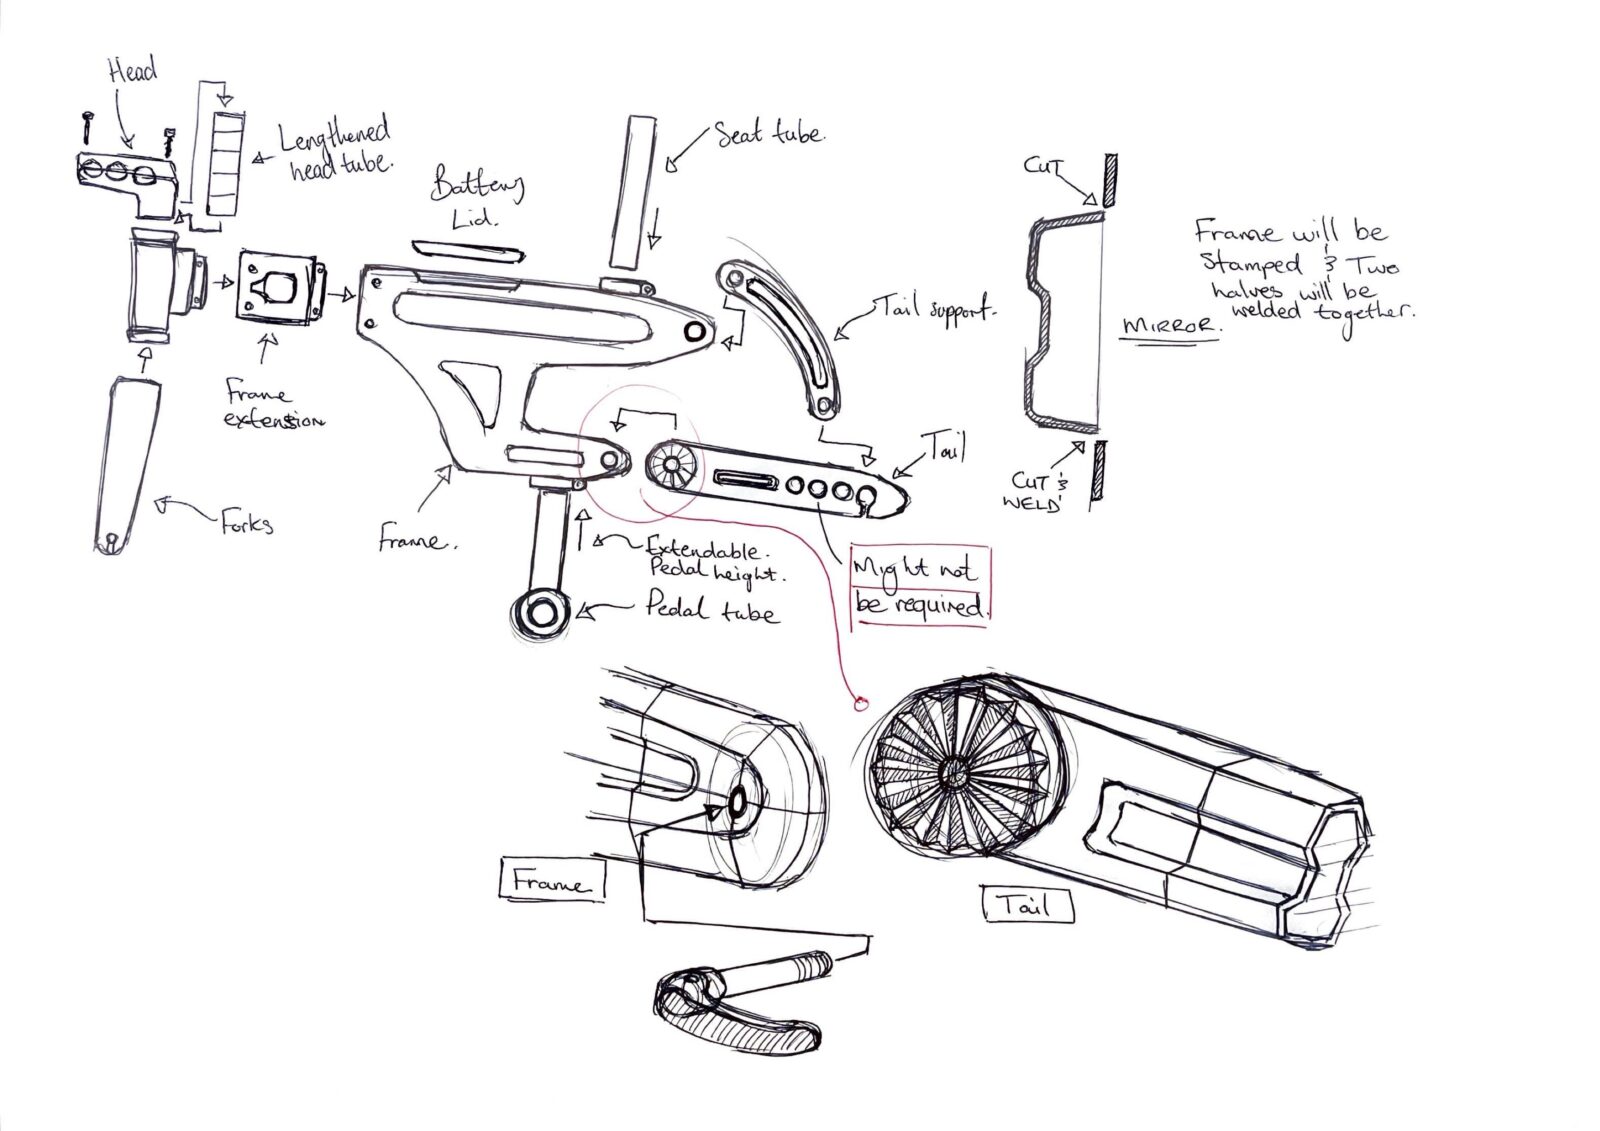 Head
Lengthened
head tube.
Battery
Lid.
Seat tube.
CUT
Frame will be
Stamped & Two
halves will be
welded together.
MIRROR.
Tail support.
Frame
extension
Tail
CUT &
WELD
Forks
Frame.
Extendable.
Pedal height.
Pedal tube
Might not
be required.
Frame
Tail